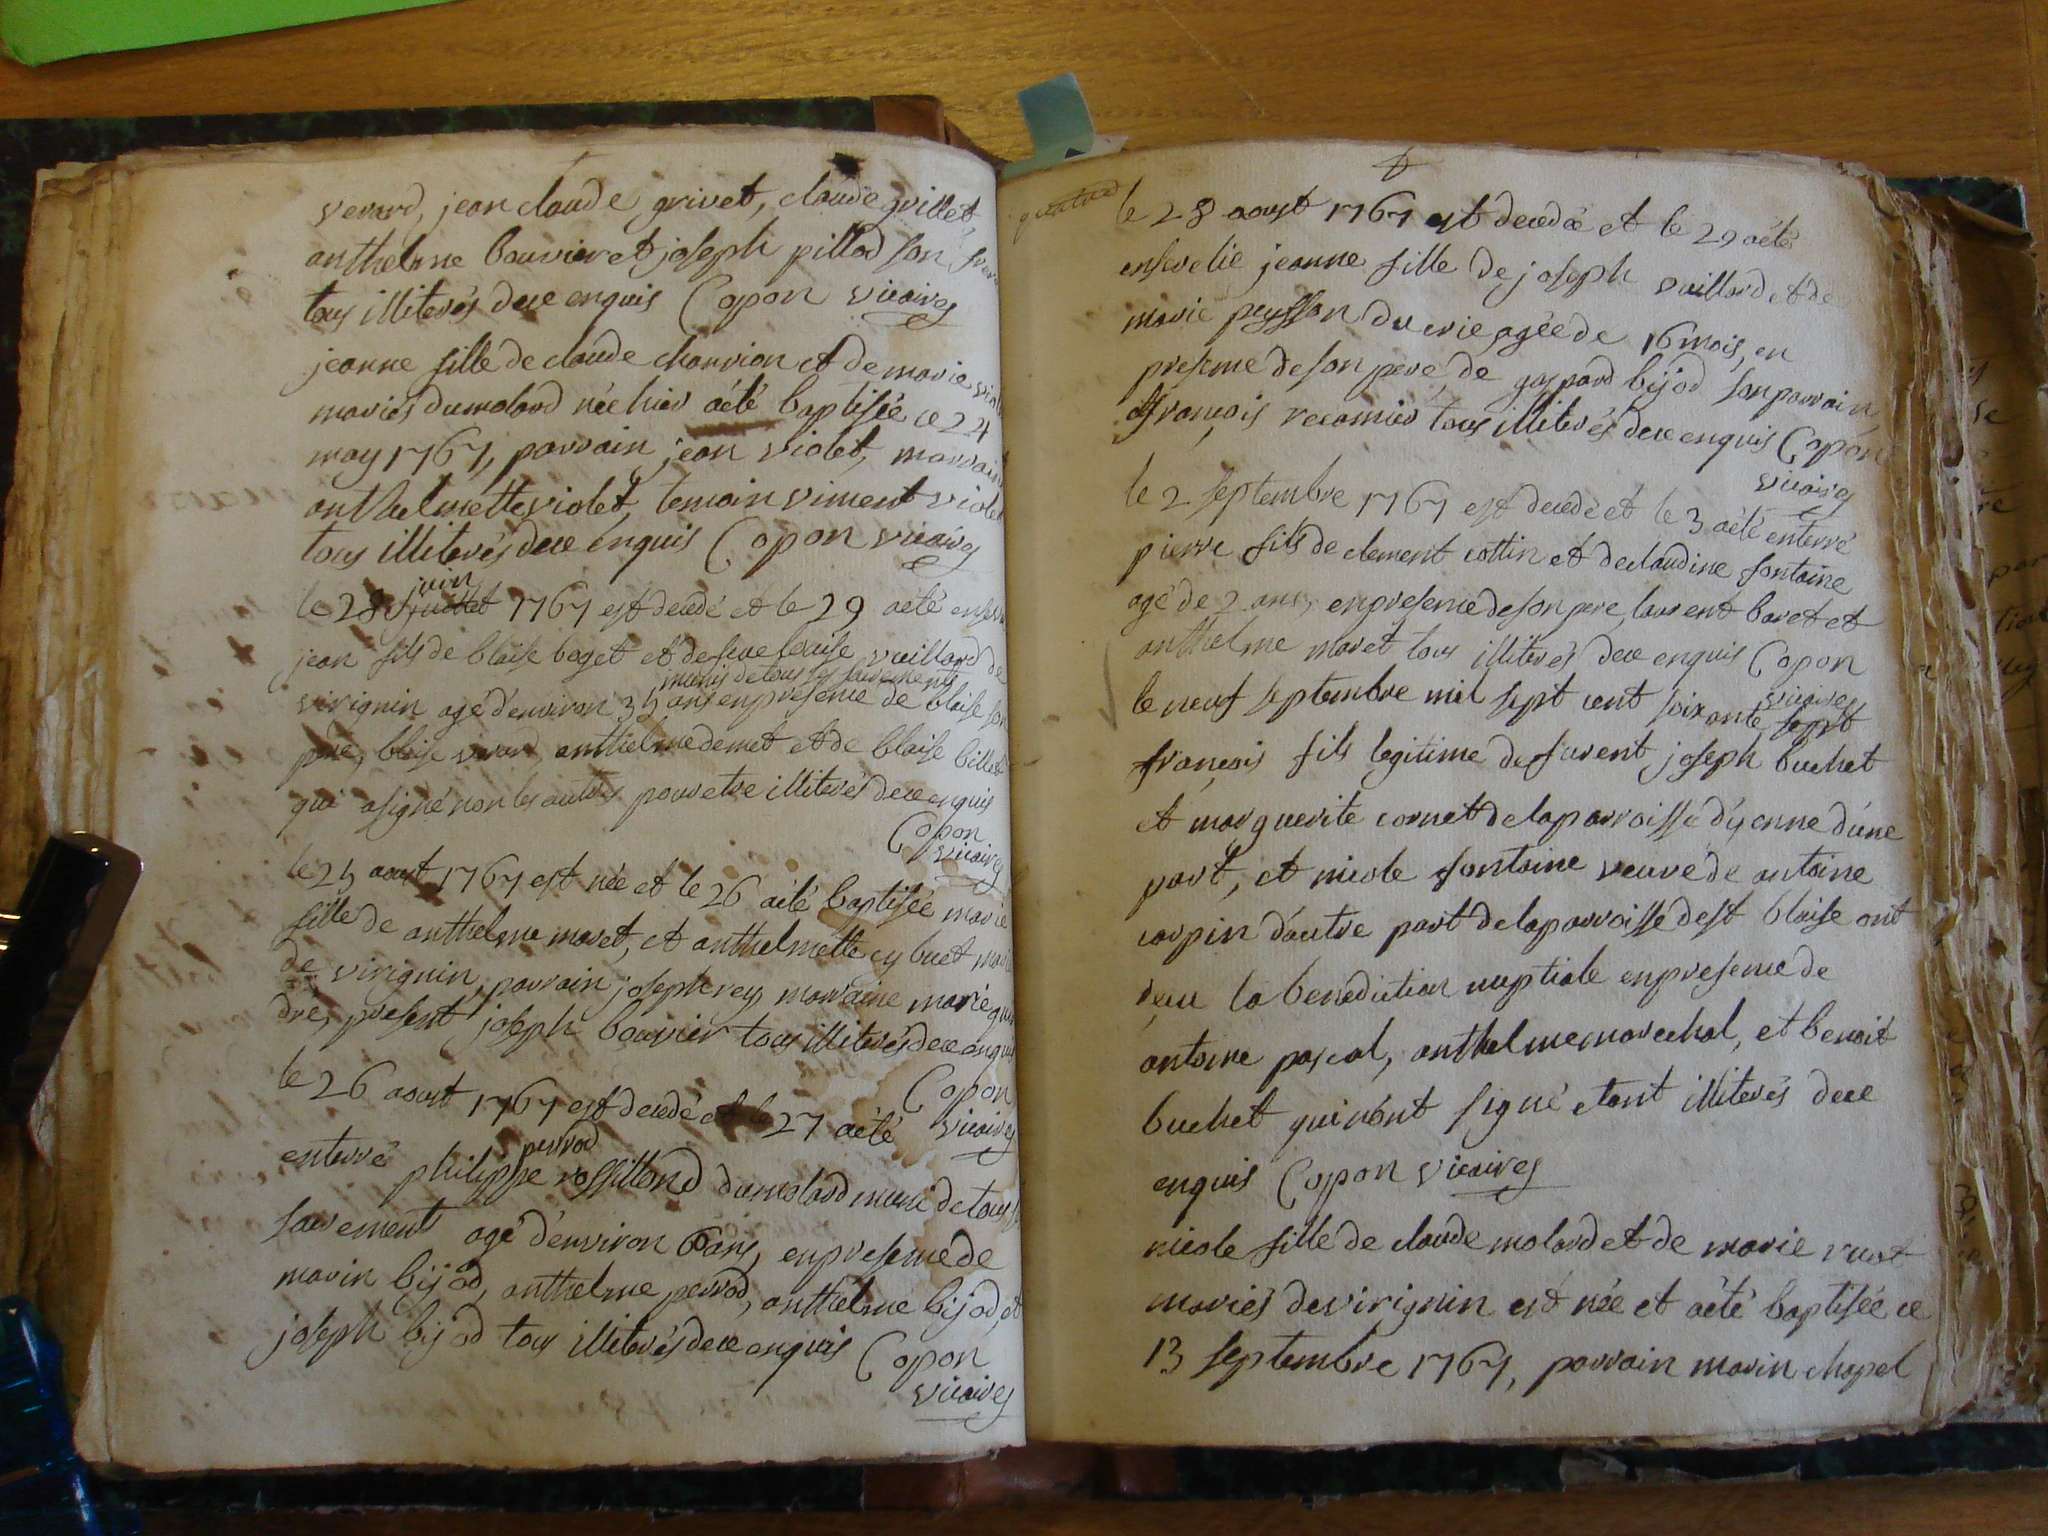 verard, jean claude grivet, claude grillet,
anthelme bouvier et joseph pillod son frere
tous illiterés de ce enquis Copon vicaires
jeanne fille de claude chanvion et de marie violet
mariés du molard née hier aété baptisée ce 24
may 1767, parrain jean violet, marraine
anthelmette violet, temoin viment violet
tous illiterés de ce enquis Copon vicaires
juin
le 28 juillet 1767 est decedé et le 29 aété enseve
jean fils de blaise boget et de feue louise vuillard de
munis de tous ses sacrements
virignin agé d'environ 35 ans en presence de blaise son
pere, blaise verard, anthelme demet et de blaise billet
qui a signé non les autres pour etre illiterés de ce enquis
Copon
vicaires
le 25 aoust 1767 est née et le 26 aété baptisée marie
fille de anthelme maret, et anthelmette cybuet mariés
de virignin, parrain joseph rey marraine marie quin
dre, present joseph bouvier tous illiterés de ce enquis
Copon
vicaires
le 26 aoust 1767 est decedé et le 27 aété
perrod
enterré philippe rossilland du molard muni de tous
sacrements agé d'environ 60 ans, en presence de
marin bijod, anthelme perrod, anthelme bijod, et
joseph bijod tous illiterés de ce enquis Copon
vicaires
quatre
le 28 aoust 1767 est decedée et le 29 aété
ensevelie jeanne fille de joseph vuillard et de
marie peysson du crie, agée de 16 mois, en
presence de son pere, de gaspard bijod son parrain
et françois recamier tous illiterés de ce enquis Copon
vicaires
le 2 septembre 1767 est decedé et le 3 aété enterré
pierre fils de clement cottin et de claudine fontaine
agé de 2 ans, en presence de son pere, laurent baret et
anthelme maret tous illiterés de ce enquis Copon
vicaires
le neuf septembre mil sept cent soixante sept
françois fils legitime de favent joseph buchet
et marguerite cornett de la parroisse d'yenne d'une
part, et nicole fontaine veuve de antoine
carpin d'autre part de la parroisse de st blaise ont
reçu la benediction nuptiale en presence de
antoine pascal, anthelme marechal, et benoit
buchet qui n'ont signé etant illiterés de ce
enquis Copon vicaires
nicole fille de claude molard et de marie ruet
mariés de virignin est née et aété baptisée ce
13 septembre 1767, parrain marin chapel